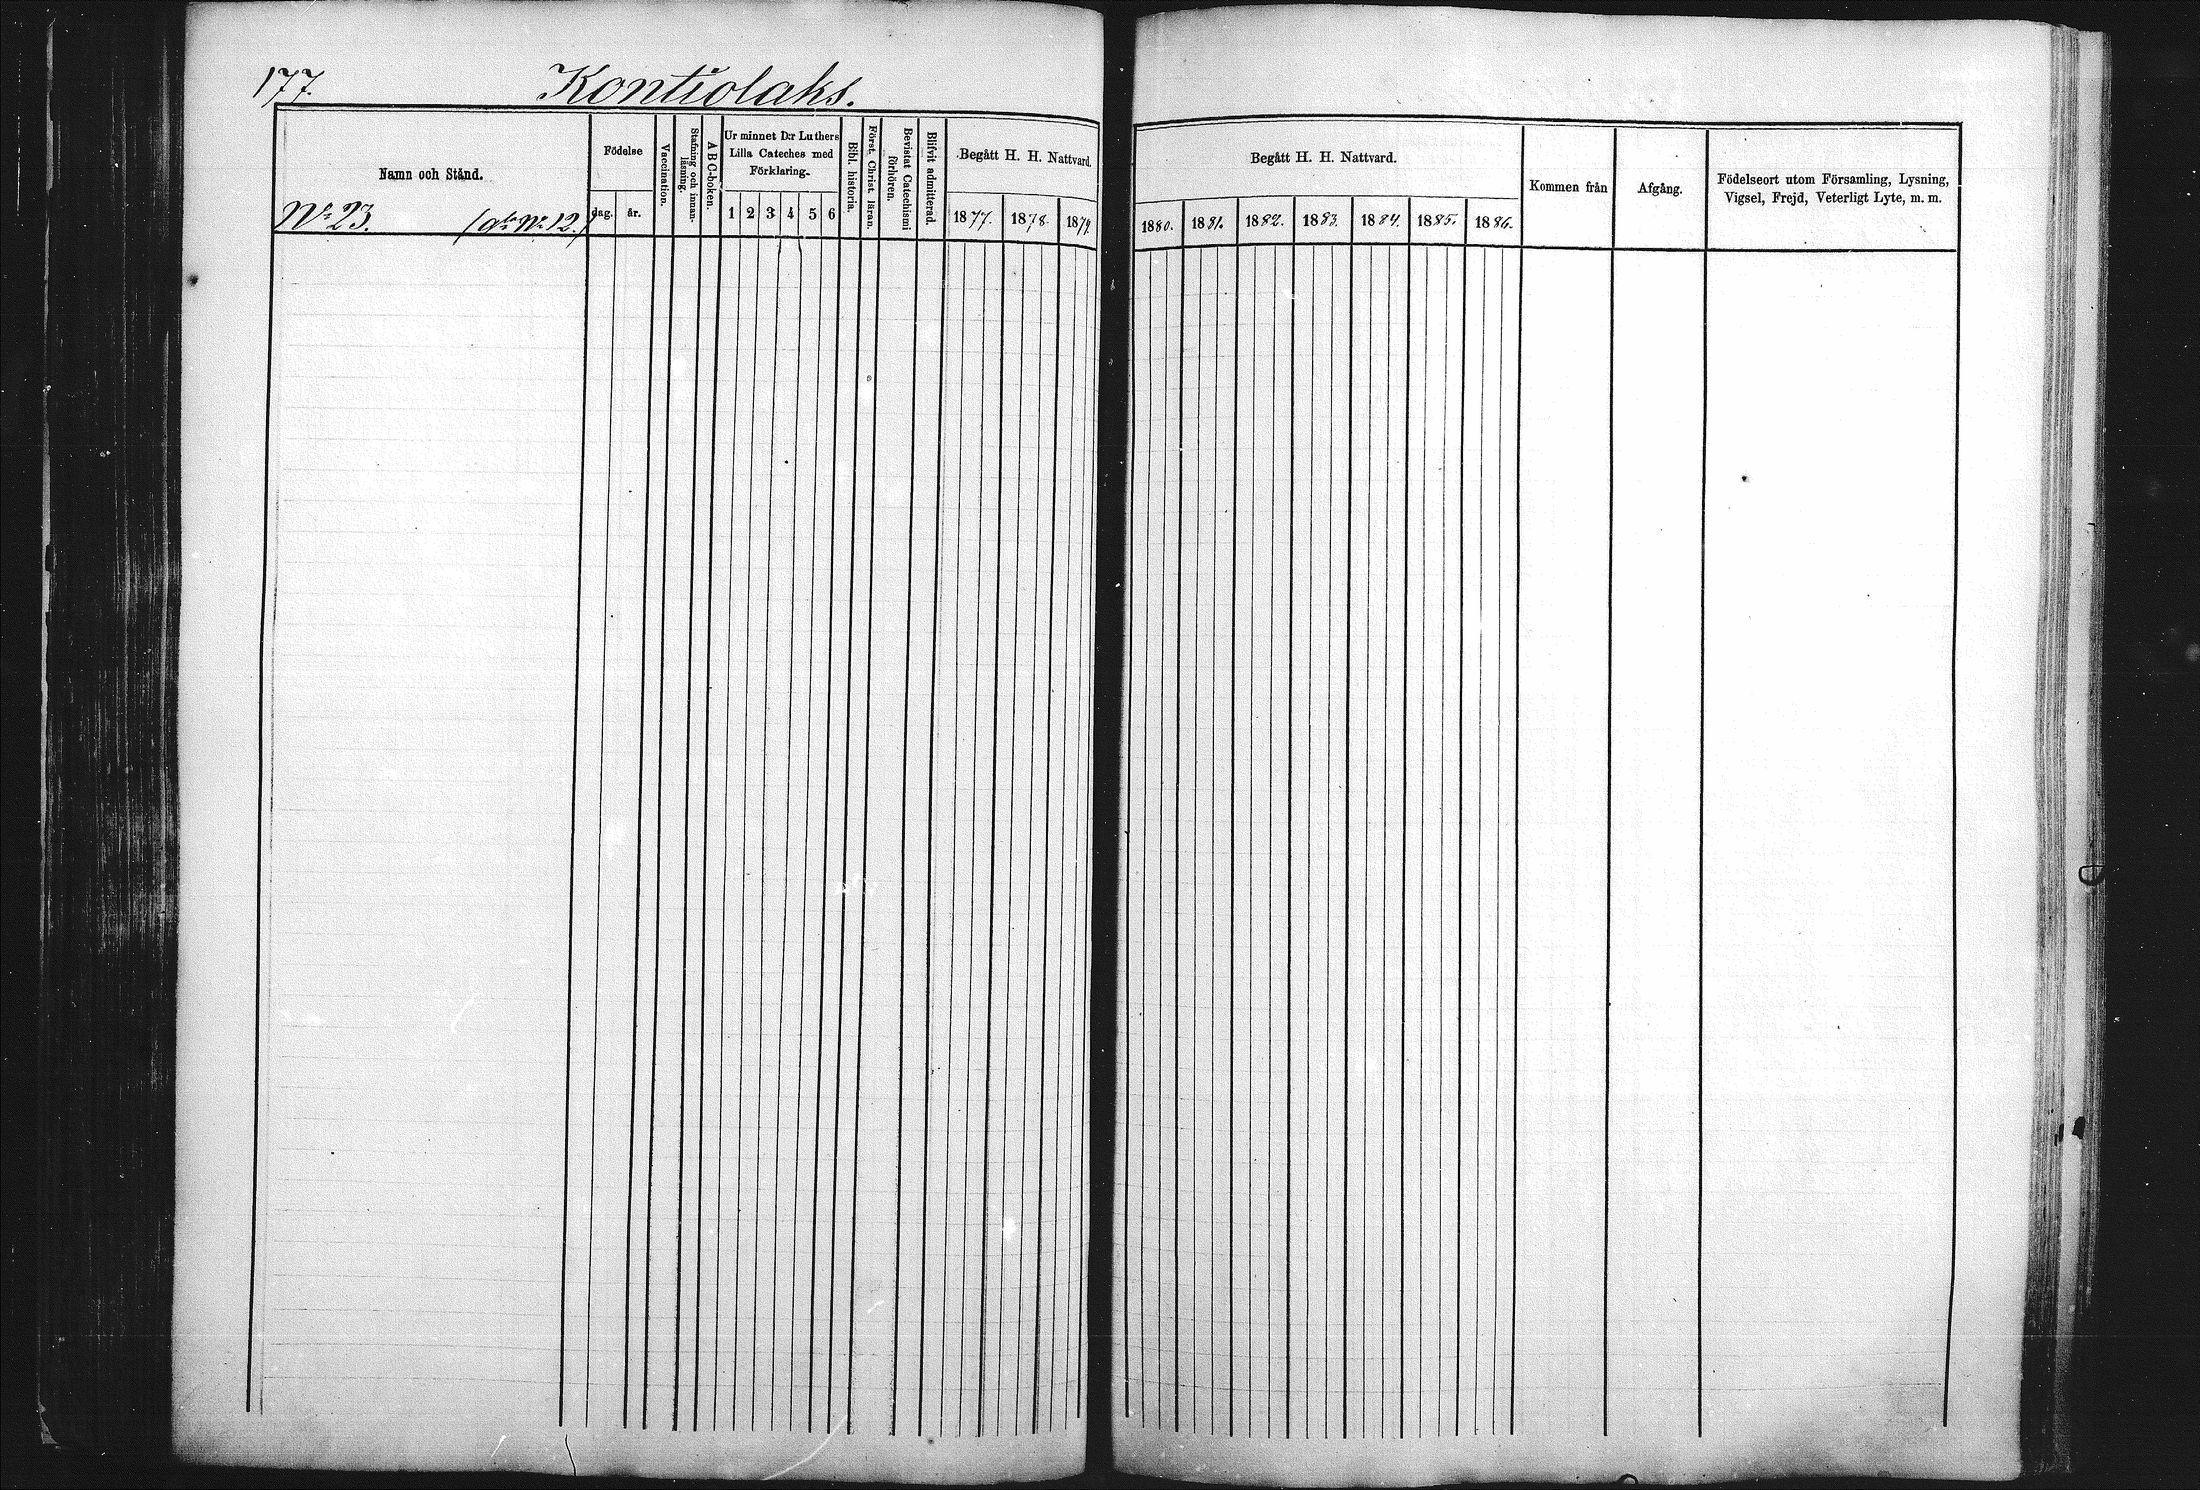 177.
Kontiolaks.
Namn och Stånd.
No 23. (No 12.)
Födelse
dag. år.
Vaccination.
Stafning och innan-
läsning.
ABC-boken.
Ur minnet D:r Luthers
Lilla Cateches med
Förklaring.
1 2 3 4 5 6
Bibl. historia.
Först. Christ. läran.
Bevistat Catechismi
förhören.
Blifvit admitterad.
Begått H. H. Nattvard.
1877. 1878. 1879.
Begått H. H. Nattvard.
1880. 1881. 1882. 1883. 1884. 1885. 1886.
Kommen från
Afgång.
Födelseort utom Församling, Lysning,
Vigsel, Frejd, Veterligt Lyte, m. m.